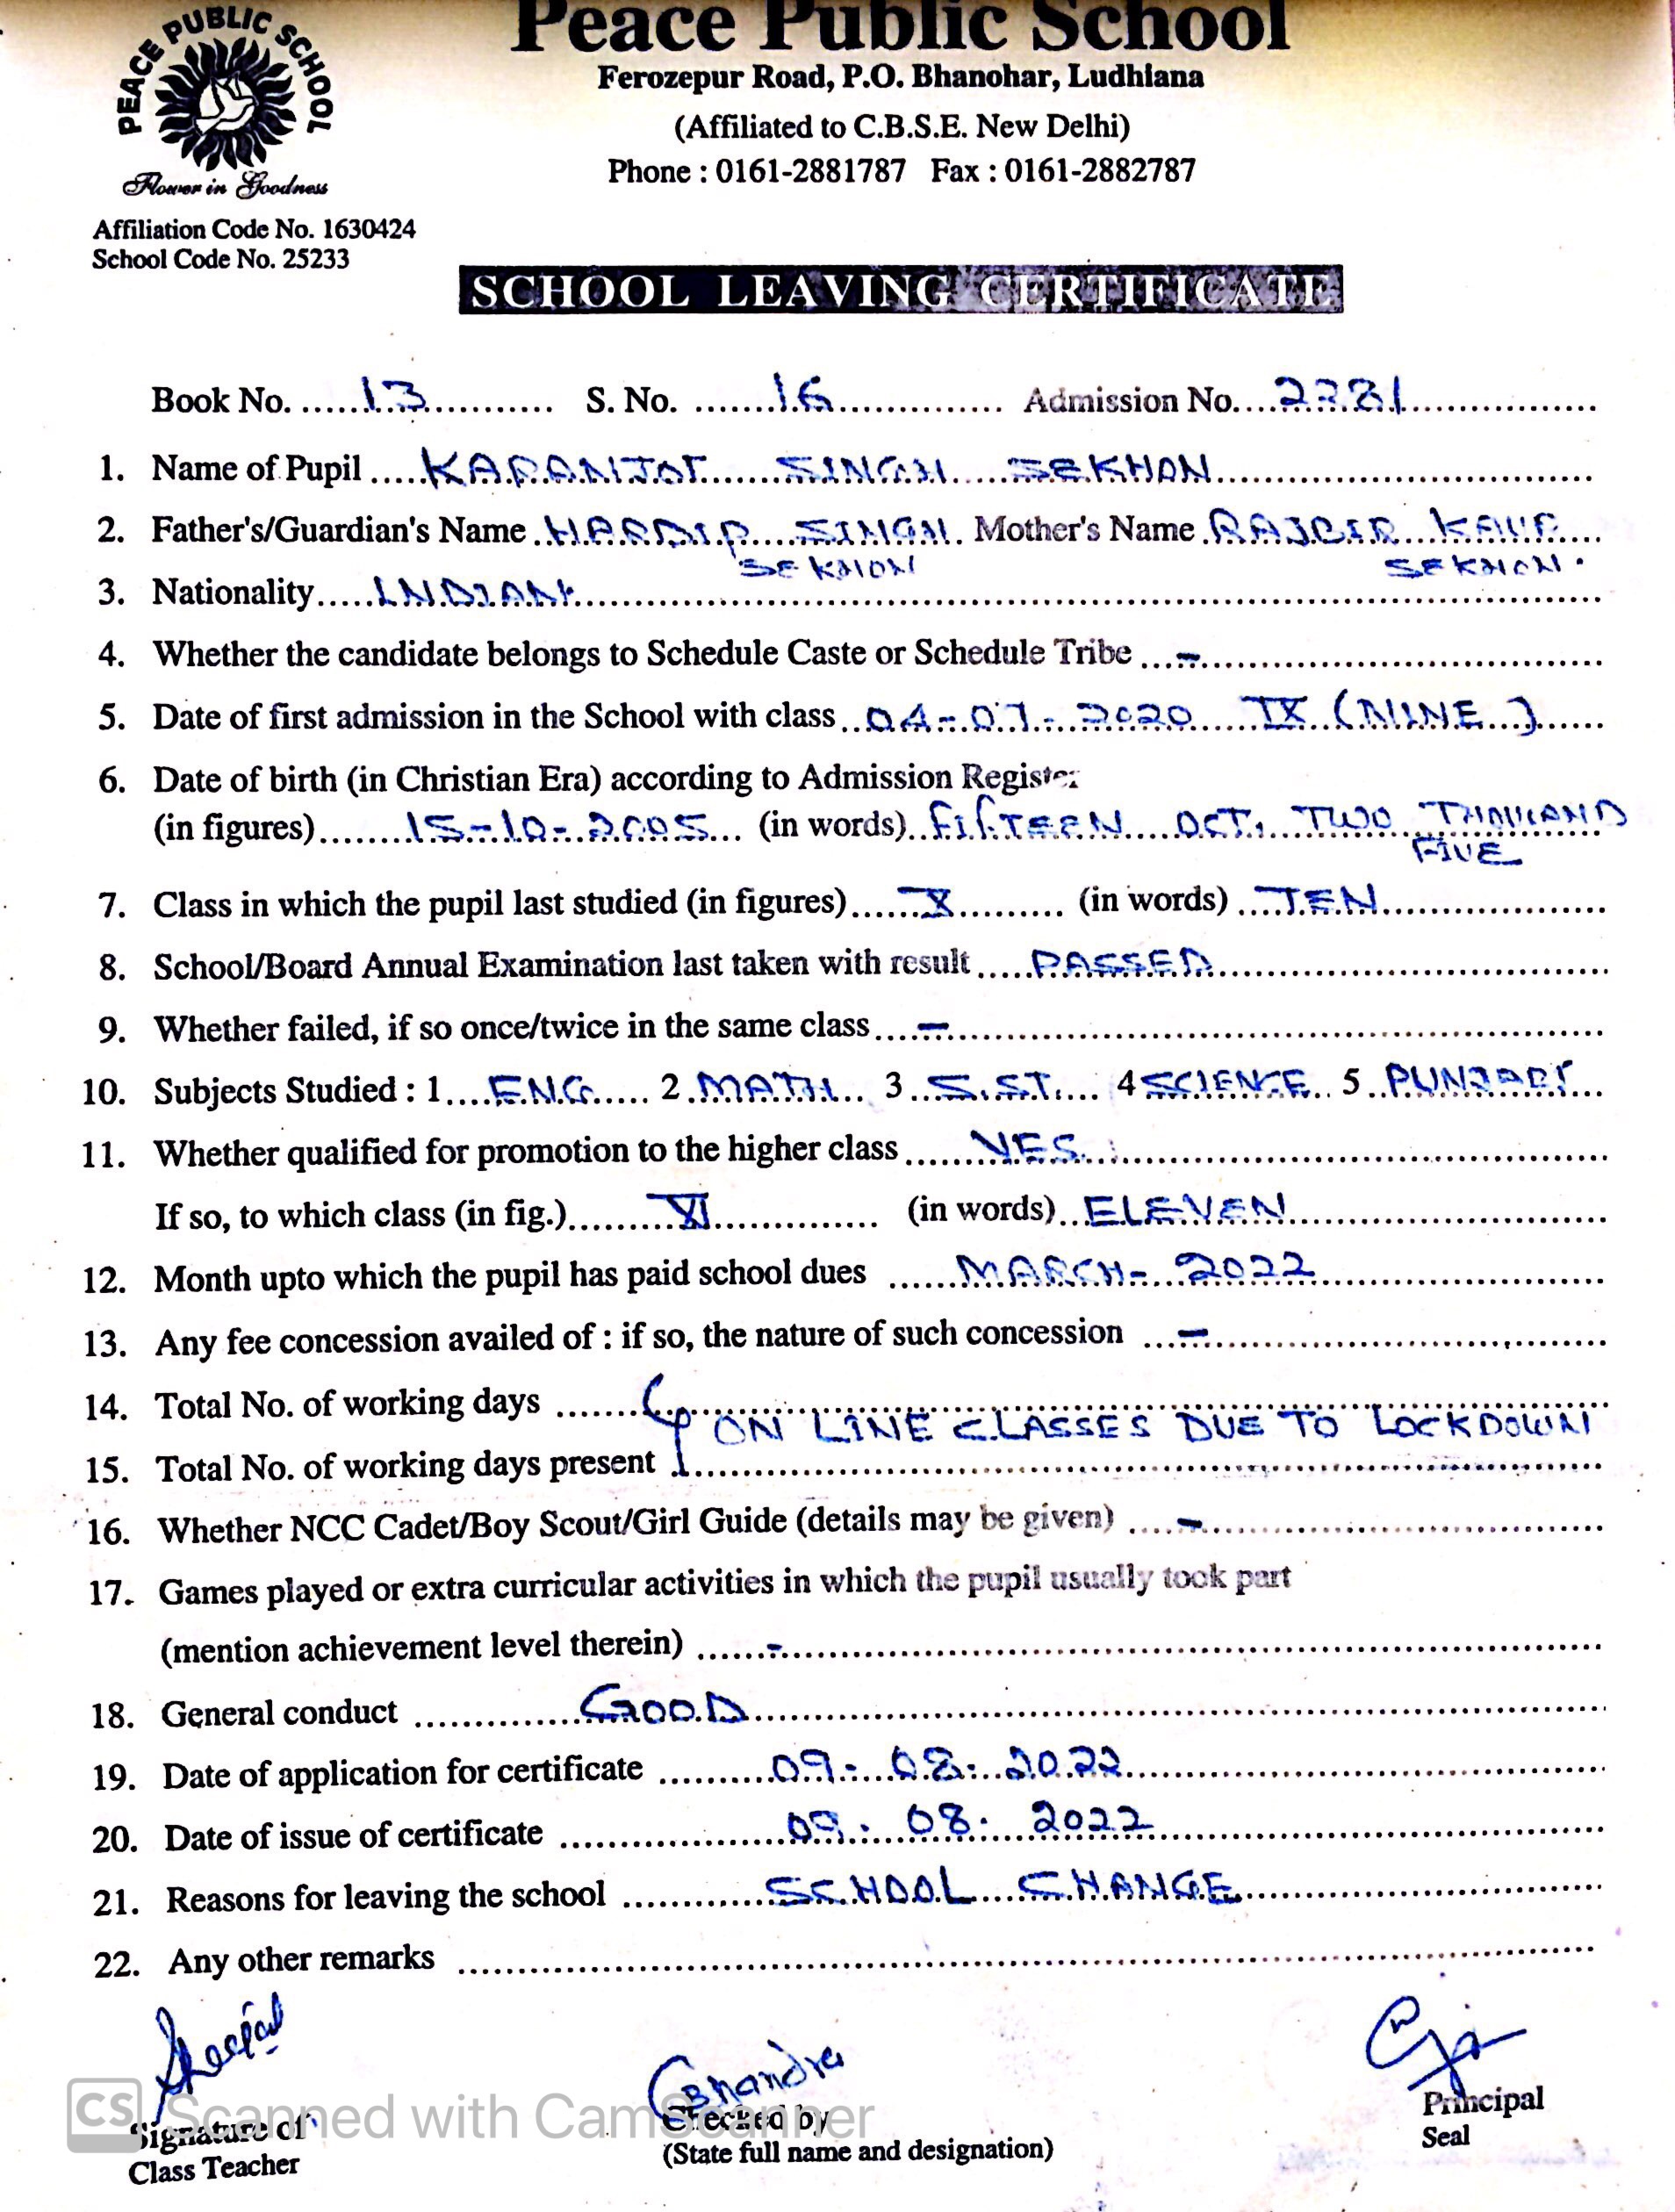 PEACE PUBLIC SCHOOL
Flower in Goodness
Peace Public School
Ferozepur Road, P.O. Bhanohar, Ludhiana
(Affiliated to C.B.S.E. New Delhi)
Phone : 0161-2881787 Fax : 0161-2882787
Affiliation Code No. 1630424
School Code No. 25233
SCHOOL LEAVING CERTIFICATE
Book No. 13 S. No. 16 Admission No.
1. Name of Pupil KARANJOT SINGH SEKHON
2. Father's/Guardian's Name HARDIP SINGH Mother's Name RAJBIR KAUR
SEKHON SEKHON.
3. Nationality INDIAN
4. Whether the candidate belongs to Schedule Caste or Schedule Tribe -
5. Date of first admission in the School with class 04-07-2020 IX (NINE)
6. Date of birth (in Christian Era) according to Admission Register
(in figures) 15-10-2005 (in words) FIFTEEN OCT. TWO THOUSAND
FIVE
7. Class in which the pupil last studied (in figures) X (in words) TEN
8. School/Board Annual Examination last taken with result PASSED
9. Whether failed, if so once/twice in the same class -
10. Subjects Studied : 1 ENG 2 MATH 3 S.ST. 4 SCIENCE 5 PUNJABI
11. Whether qualified for promotion to the higher class YES
If so, to which class (in fig.) XI (in words) ELEVEN
12. Month upto which the pupil has paid school dues MARCH - 2022
13. Any fee concession availed of : if so, the nature of such concession -
14. Total No. of working days
ON LINE CLASSES DUE TO LOCKDOWN
15. Total No. of working days present
16. Whether NCC Cadet/Boy Scout/Girl Guide (details may be given) -
17. Games played or extra curricular activities in which the pupil usually took part
(mention achievement level therein) -
18. General conduct GOOD
19. Date of application for certificate 09-08-2022
20. Date of issue of certificate 09.08.2022
21. Reasons for leaving the school SCHOOL CHANGE
22. Any other remarks
Chandra
CS Scanned with CamScanner
Signature of Checked by Principal
Class Teacher (State full name and designation) Seal